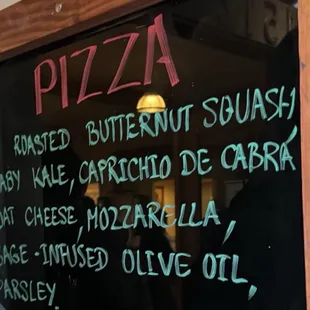 PIZZA
ROASTED BUTTERNUT SQUASH
ABY KALE, CAPRICHIO DE CABRA
OAT CHEESE, MOZZARELLA,
SAGE-INFUSED OLIVE OIL,
PARSLEY